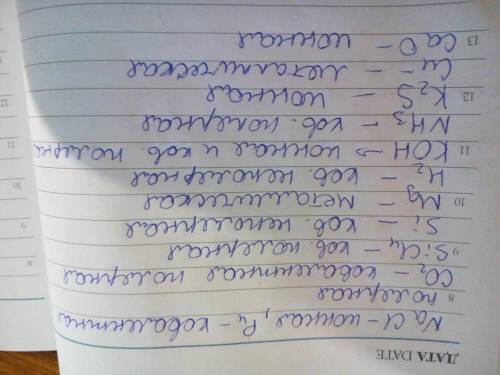 ДАТА DATE
NaCl – ионная, P₄ – ковалентна
8 полерная
CO₂ – ковалентная полерная
9 SiCl₄ – ков. полерная
Si – ков. неполерная
10 Mg – металическая
H₂ – ков. неполерная
11 KOH → ионная и ков. полерна
NH₃ – ков. полерная
12 K₂S – ионная
Cu – металическая
13 CaO – ионная
8
9
10
11
12